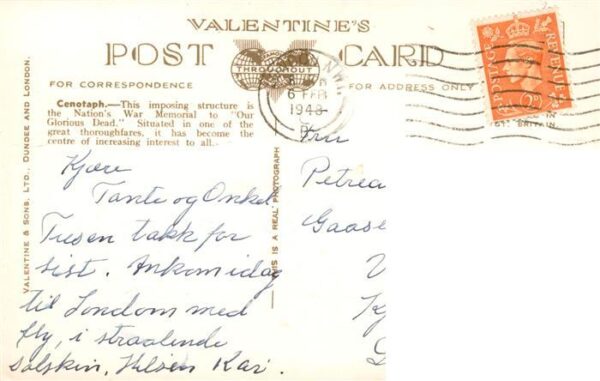 VALENTINE'S
POST CARD
THROUGHOUT
FOR CORRESPONDENCE
FOR ADDRESS ONLY
Cenotaph.—This imposing structure is
the Nation's War Memorial to "Our
Glorious Dead." Situated in one of the
great thoroughfares, it has become the
centre of increasing interest to all.
VALENTINE & SONS, LTD., DUNDEE AND LONDON.
THIS IS A REAL PHOTOGRAPH
N.W.1
6 FEB
1948
POSTAGE
REVENUE
Kjære
Tante og Onkel
Tusen takk for
sist. Ankom idag
til London med
fly, i straalende
solskin, Hilsen Kari.
Fru
Petrea
Gaase